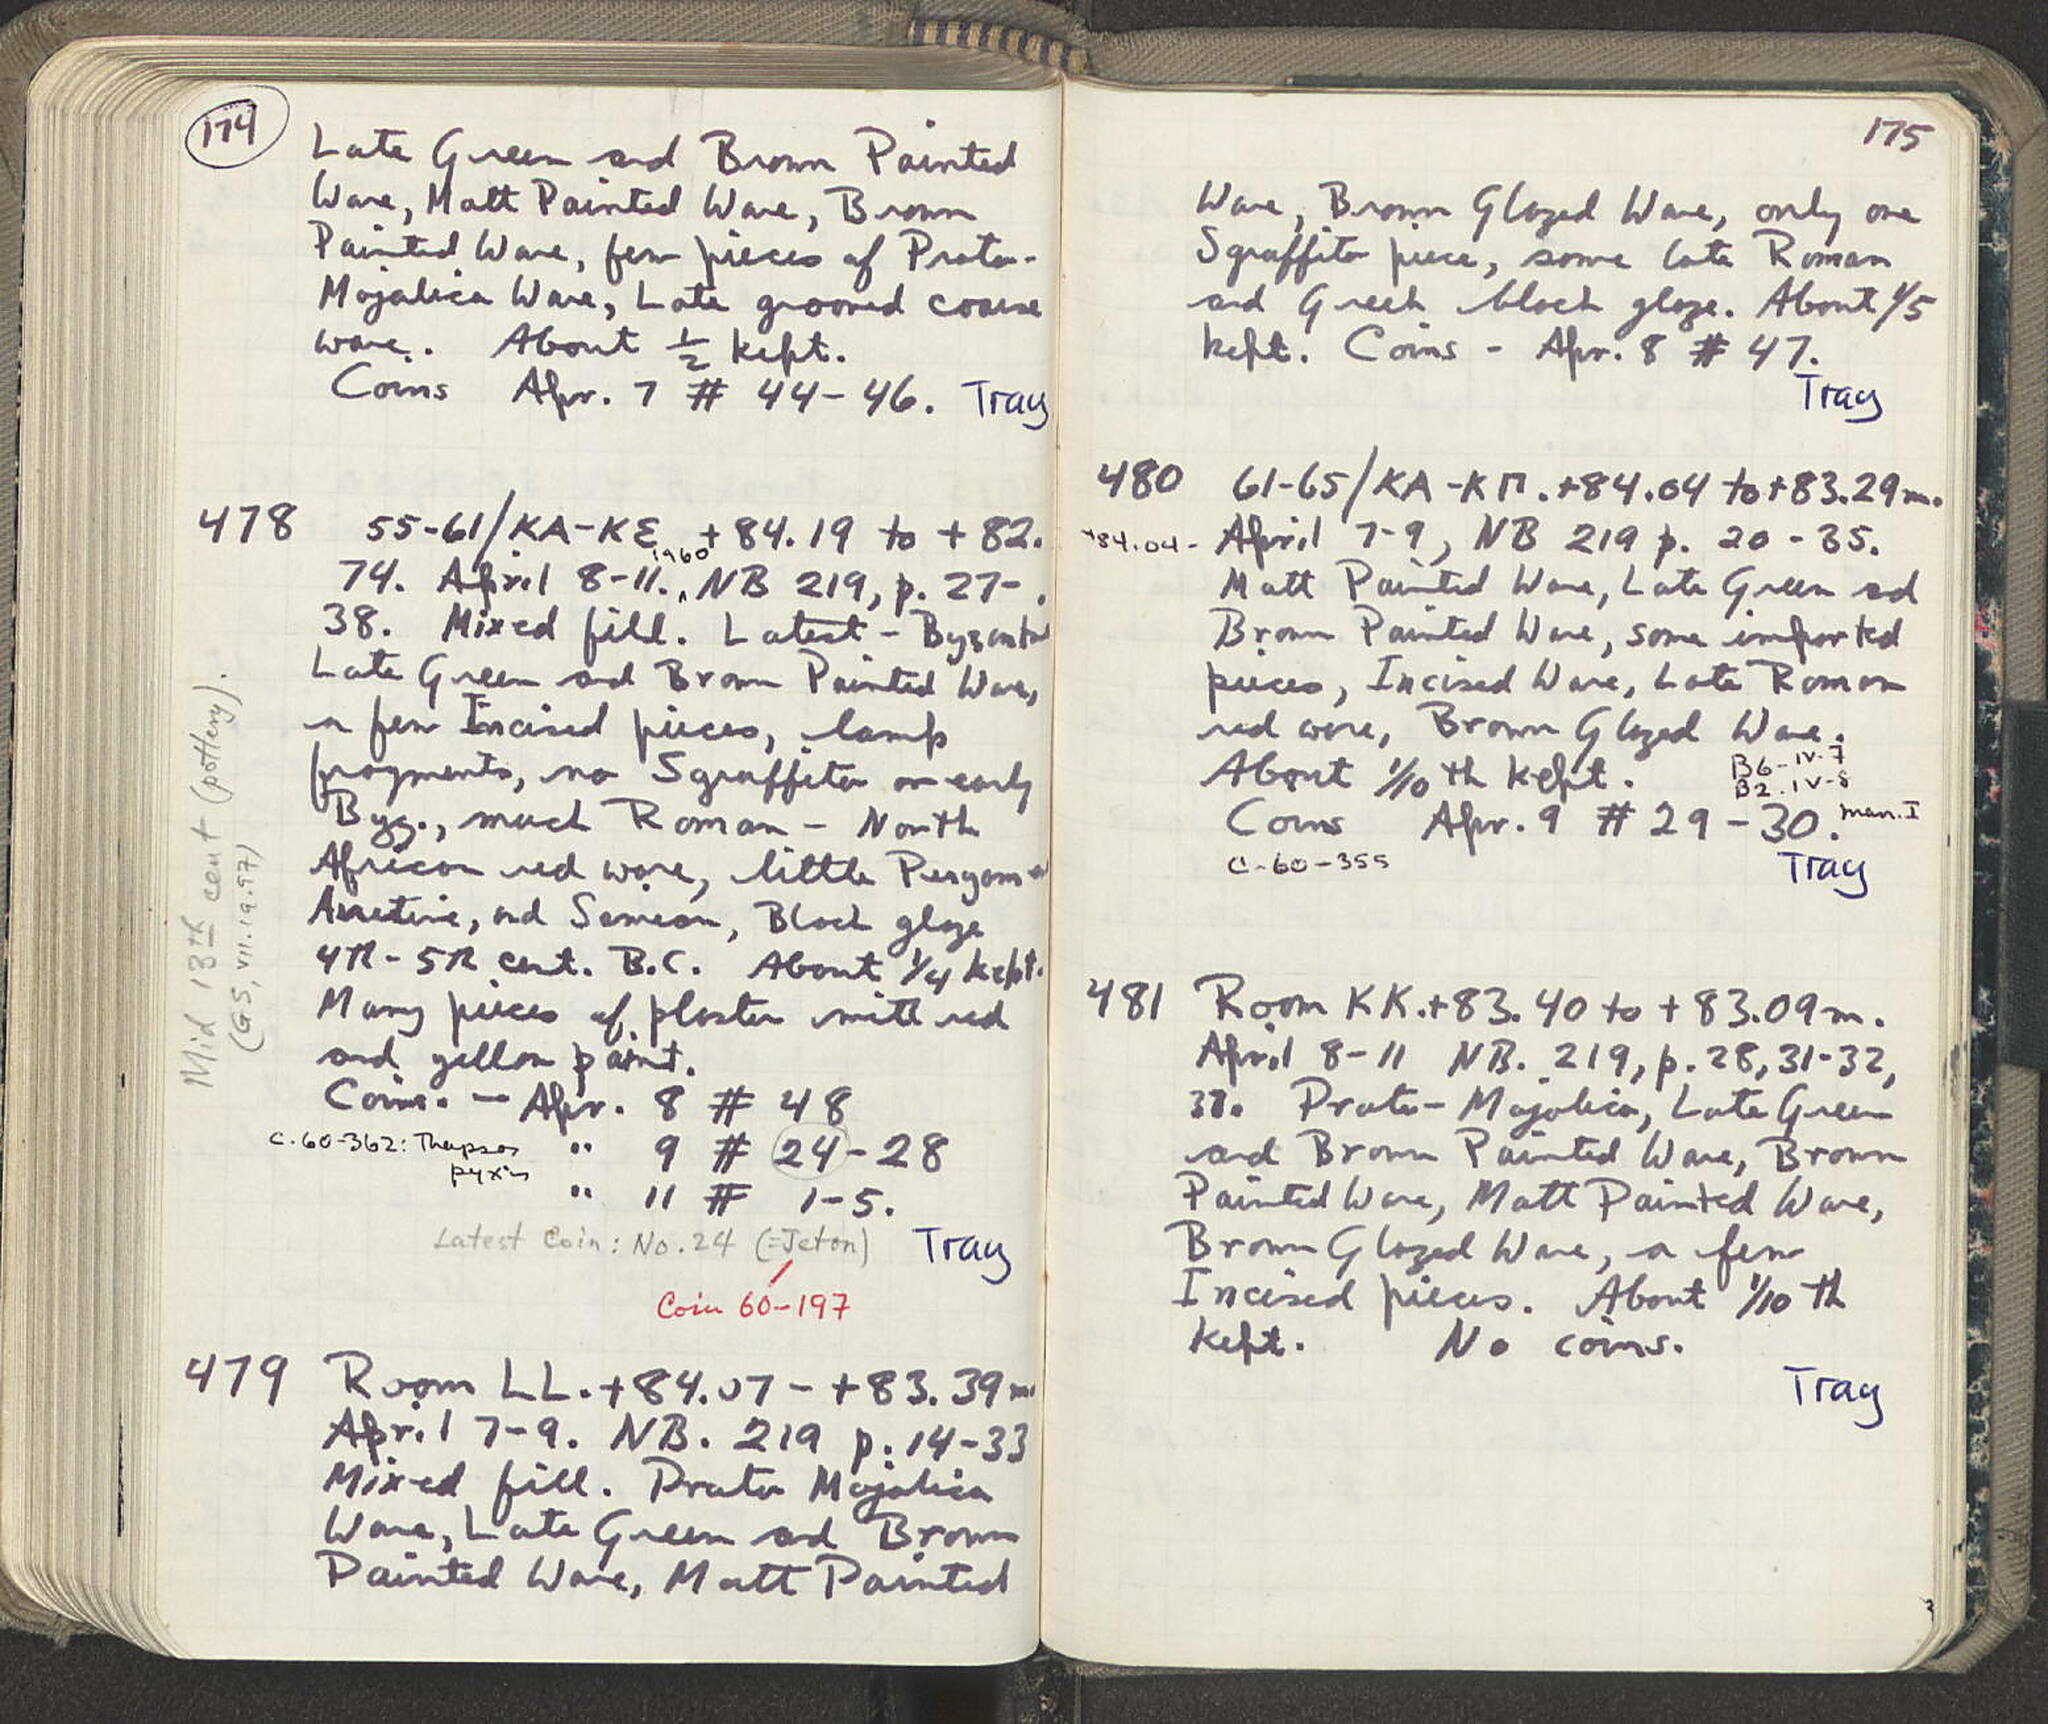 174
Late Green and Brown Painted
Ware, Matt Painted Ware, Brown
Painted Ware, few pieces of Proto-
Majolica Ware, Late grooved coarse
ware. About 1/2 kept.
Coins Apr. 7 # 44-46. Tray
478 55-61/KA-KE +84.19 to +82.
74. April 8-11, 1960 NB 219, p. 27-
38. Mixed fill. Latest - Byzantine
Late Green and Brown Painted Ware,
a few Incised pieces, lamp
fragments, no Sgraffito or early
Byz., much Roman - North
African red ware, little Pergamene
Arretine, and Samean, Black glaze
4th-5th cent. B.C. About 1/4 kept.
Many pieces of plaster with red
and yellow paint.
Coins. - Apr. 8 # 48
" 9 # 24-28
" 11 # 1-5.
C-60-362: Thapsos
pyxis
Latest Coin: No. 24 (=Jeton) Tray
Coin 60-197
Mid 13th cent (pottery).
(GS, VII.19.97)
479 Room LL. +84.07 - +83.39 m
April 7-9. NB. 219 p. 14-33
Mixed fill. Proto Majolica
Ware, Late Green and Brown
Painted Ware, Matt Painted
175
Ware, Brown Glazed Ware, only one
Sgraffito piece, some late Roman
and Greek black glaze. About 1/5
kept. Coins - Apr. 8 # 47.
Tray
480 61-65/KA-KΠ. +84.04 to +83.29 m.
+84.04- April 7-9, NB 219 p. 20-35.
Matt Painted Ware, Late Green and
Brown Painted Ware, some imported
pieces, Incised Ware, Late Roman
red ware, Brown Glazed Ware.
About 1/10th kept. B6-IV-7
B2.IV-8
Coins Apr. 9 # 29-30. Man. I
C-60-355 Tray
481 Room KK. +83.40 to +83.09 m.
April 8-11 NB. 219, p. 28, 31-32,
38. Proto-Majolica, Late Green
and Brown Painted Ware, Brown
Painted Ware, Matt Painted Ware,
Brown Glazed Ware, a few
Incised pieces. About 1/10th
kept. No coins.
Tray